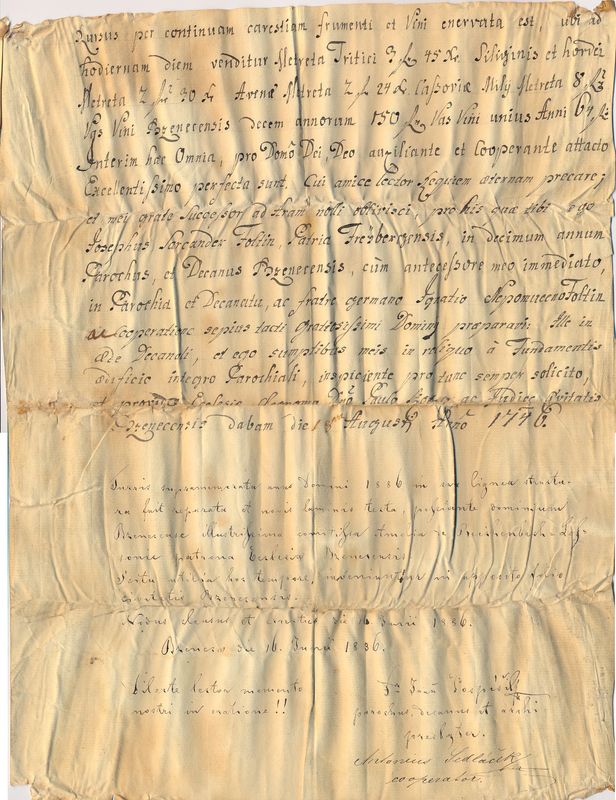 Rursus per continuam carestiam frumenti et Vini enervata est, ubi ad
hodiernam diem venditur Metreta Tritici 3 f 45 Xr. Siliginis et hordei
Metreta 2 f 30 X Avenæ Metreta 2 f 24 X. Milij Metreta 8 f
Vas Vini Bzenecensis decem annorum 150 f Vas Vini unius Anni 64 f
Interim hæc Omnia, pro Domo Dei, Deo auxiliante et Cooperante attacto
Excelentissimo perfecta sunt. Cui amice lector Requiem æternam precare;
et mei grate Successor ad aram noli oblivisci, pro his quæ tibi ego
Josephus Sarcander Foltin, Patria Freybergensis, in decimum annum
Parochus, et Decanus Bzenecensis, cum antecessore meo immediato,
in Parochia et Decanatu, ac fratre germano Ignatio Nepomuceno Foltin
ac Cooperatione sepius tacti Gratiosissimi Domini præparavi: Ille in
Æde Decanali, et ego sumptibus meis in reliquo à Fundamentis
ædificio integro Parochiali, inspiciente pro tunc semper solicito,
et Ecclesiæ Dno Paulo ac Judice Civitatis
Bzenecensis dabam die Augusti Anno 1776.
Turris supramemorata anno Domini 1886 in sua lignea structu-
ra fuit reparata et novis laminis tecta, possidente dominium
Bzenecense Illustrissima comitissa Amalia de Reichenbach-Les-
sonic patrona Ecclesiæ Bzenecensis.
Scitu utilia hoc tempore, inveniuntur in apposito folio
civitatis Bzenecensis.
Nodus clausus et die 16 Junii 1886.
Bzenecii die 16. Junii 1886.
lector memento
nostri in oratione!!
Fr. Pospíšil
parochus, decanus et archi
presbyter.
Antonius Sedláček
cooperator.